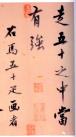 走五十之中當
有強
右馬五十疋画者